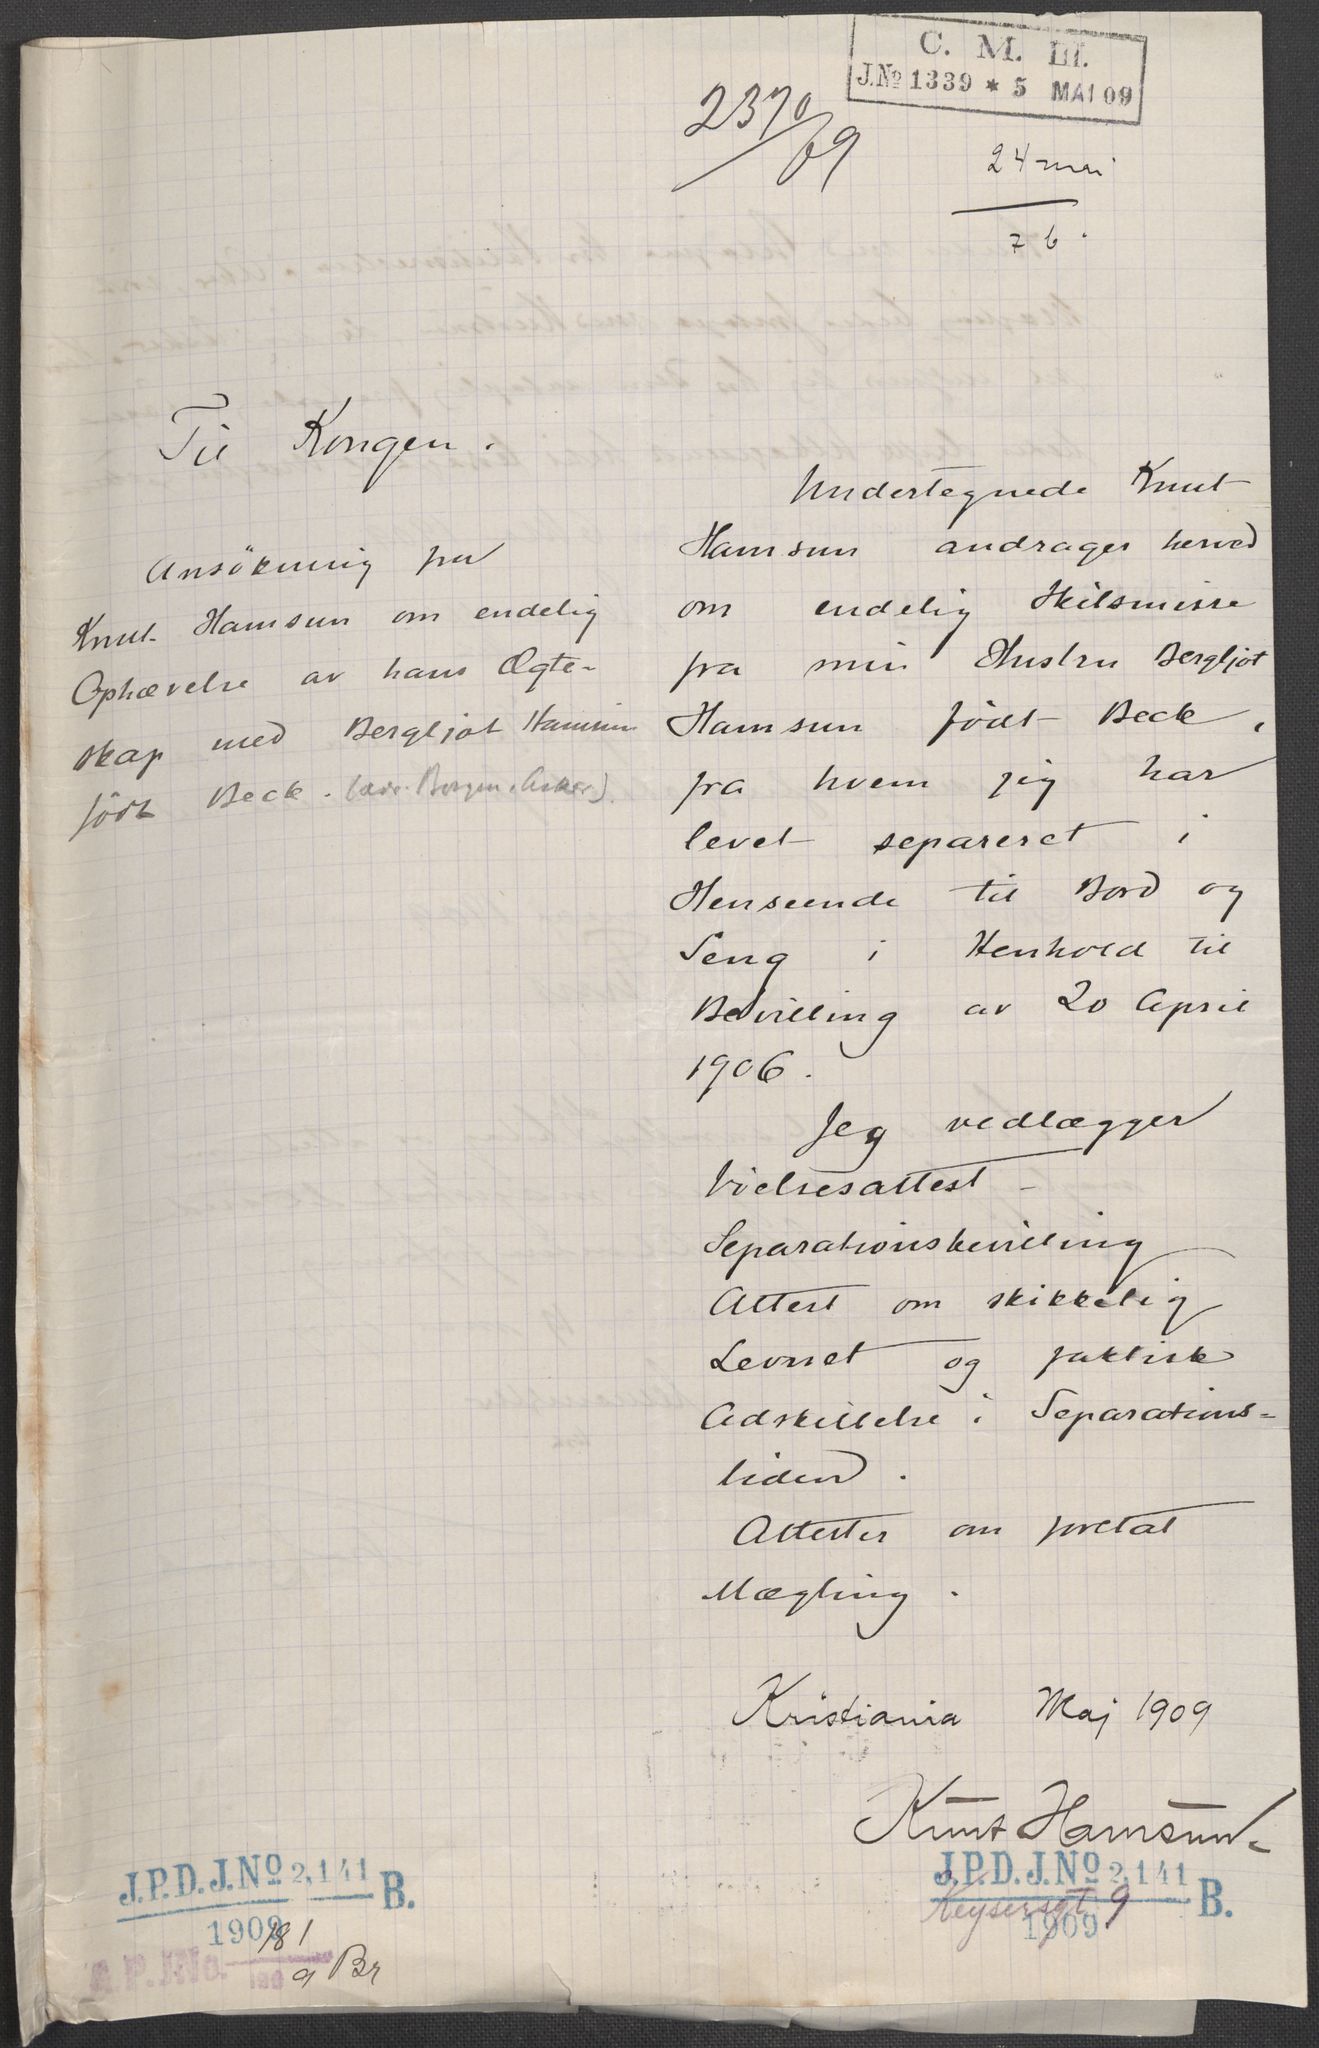 C. M. III.
J.No 1339 * 5 MAI 09
2370/09
24 mai
7 6.
Til Kongen.
Ansökning fra
Knut Hamsun om endelig
Ophævelse av hans Ægte-
skap med Bergljot Hamsun
födt Beck. (adr. Borgen, Asker).
Undertegnede Knut
Hamsun andrager herved
om endelig Skilsmisse
fra min Hustru Bergljot
Hamsun födt Beck,
fra hvem jeg har
levet separeret i
Henseende til Bord og
Seng i Henhold til
Bevilling av 20 April
1906.
Jeg vedlægger
Vielsesattest -
Separationsbevilling
Attest om skikkelig
Levnet og faktisk
Adskillelse i Separations-
tiden.
Attester om foretat
Mægling.
Kristiania Maj 1909
Knut Hamsun.
Keysersgt 9
J.P.D.J.No 2,141 B.
1909
J.P.D.J.No 2,141 B.
1909
A.P.J.No. 181
190 9 Br